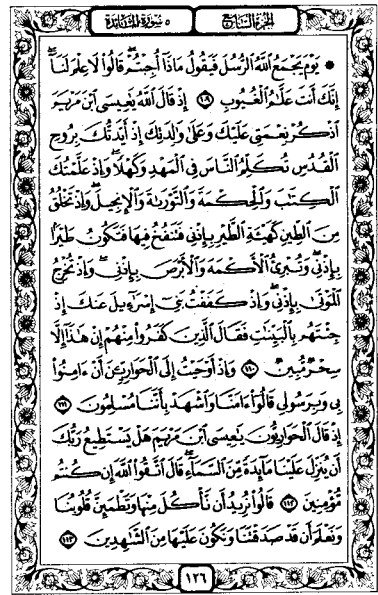 الجزء السابع ٥ سورة المائدة
۞ يَوْمَ يَجْمَعُ اللَّهُ الرُّسُلَ فَيَقُولُ مَاذَا أُجِبْتُمْ قَالُوا لَا عِلْمَ لَنَا
إِنَّكَ أَنتَ عَلَّامُ الْغُيُوبِ ١٠٩ إِذْ قَالَ اللَّهُ يَاعِيسَى ابْنَ مَرْيَمَ
اذْكُرْ نِعْمَتِي عَلَيْكَ وَعَلَى وَالِدَتِكَ إِذْ أَيَّدتُّكَ بِرُوحِ
الْقُدُسِ تُكَلِّمُ النَّاسَ فِي الْمَهْدِ وَكَهْلًا وَإِذْ عَلَّمْتُكَ
الْكِتَابَ وَالْحِكْمَةَ وَالتَّوْرَاةَ وَالْإِنجِيلَ وَإِذْ تَخْلُقُ
مِنَ الطِّينِ كَهَيْئَةِ الطَّيْرِ بِإِذْنِي فَتَنفُخُ فِيهَا فَتَكُونُ طَيْرًا
بِإِذْنِي وَتُبْرِئُ الْأَكْمَهَ وَالْأَبْرَصَ بِإِذْنِي وَإِذْ تُخْرِجُ
الْمَوْتَى بِإِذْنِي وَإِذْ كَفَفْتُ بَنِي إِسْرَائِيلَ عَنكَ إِذْ
جِئْتَهُم بِالْبَيِّنَاتِ فَقَالَ الَّذِينَ كَفَرُوا مِنْهُمْ إِنْ هَذَا إِلَّا
سِحْرٌ مُّبِينٌ ١١٠ وَإِذْ أَوْحَيْتُ إِلَى الْحَوَارِيِّينَ أَنْ ءَامِنُوا
بِي وَبِرَسُولِي قَالُوا ءَامَنَّا وَاشْهَدْ بِأَنَّنَا مُسْلِمُونَ ١١١
إِذْ قَالَ الْحَوَارِيُّونَ يَاعِيسَى ابْنَ مَرْيَمَ هَلْ يَسْتَطِيعُ رَبُّكَ
أَن يُنَزِّلَ عَلَيْنَا مَائِدَةً مِّنَ السَّمَاءِ قَالَ اتَّقُوا اللَّهَ إِن كُنتُم
مُّؤْمِنِينَ ١١٢ قَالُوا نُرِيدُ أَن نَّأْكُلَ مِنْهَا وَتَطْمَئِنَّ قُلُوبُنَا
وَنَعْلَمَ أَن قَدْ صَدَقْتَنَا وَنَكُونَ عَلَيْهَا مِنَ الشَّاهِدِينَ ١١٣
١٢٦